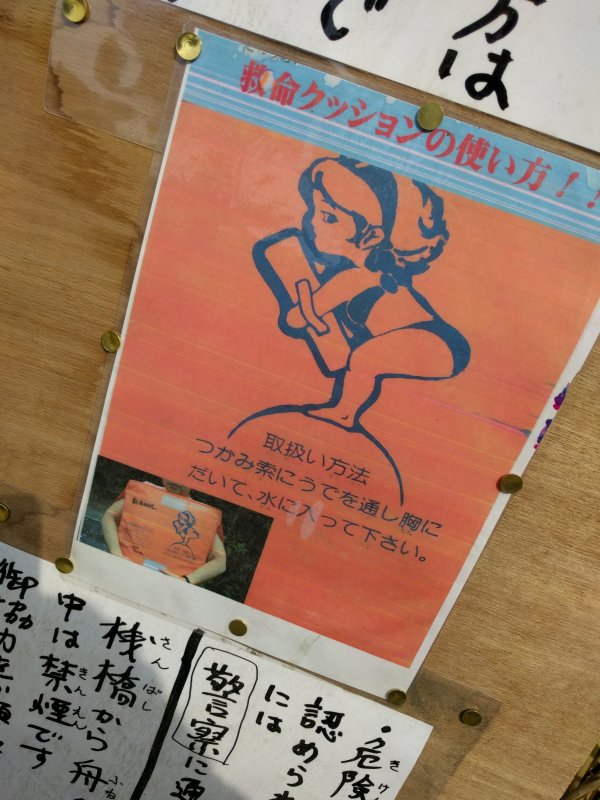 方は
で
救命クッションの使い方!!
取扱い方法
つかみ索にうでを通し胸に
だいて、水に入って下さい。
危険
認めら
には
警察に通
桟橋から舟
中は禁煙です
御協力